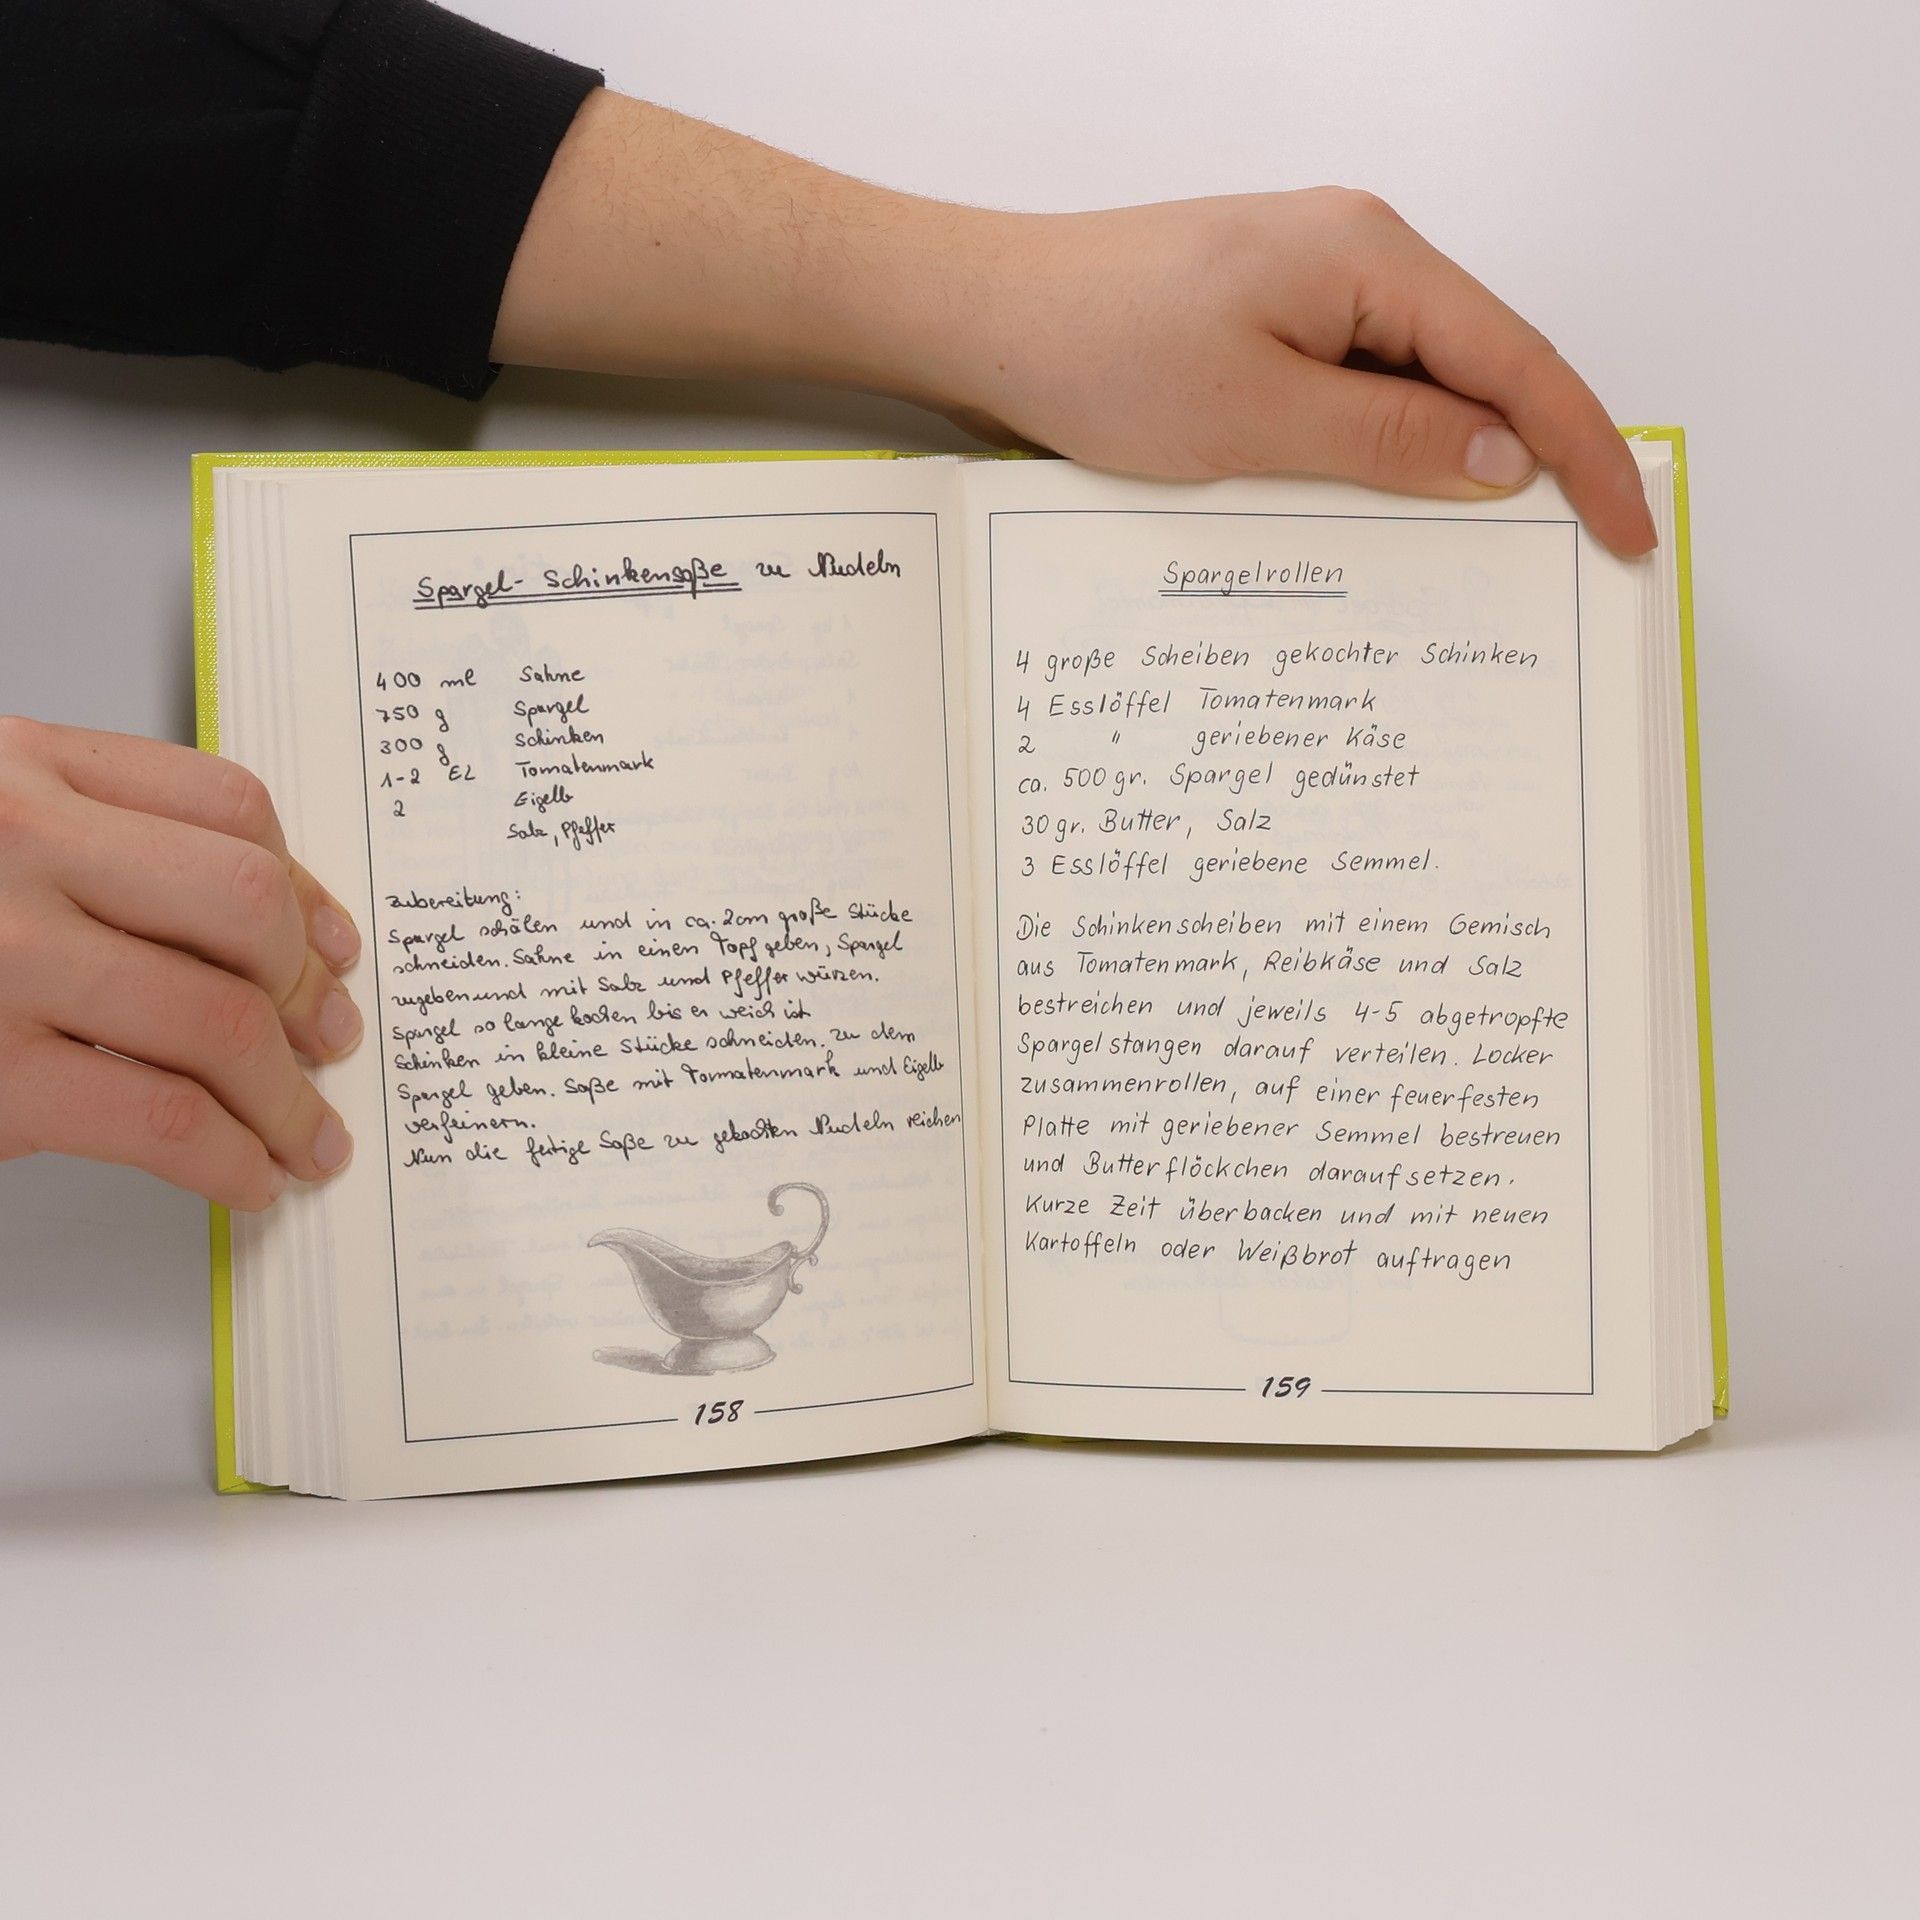 Spargel- Schinkensoße zu Nudeln
400 ml Sahne
750 g Spargel
300 g Schinken
1-2 EL Tomatenmark
2 Eigelb
Salz, Pfeffer
Zubereitung:
Spargel schälen und in ca. 2cm große Stücke
schneiden. Sahne in einen Topf geben, Spargel
zugeben und mit Salz und Pfeffer würzen.
Spargel so lange kochen bis er weich ist
Schinken in kleine Stücke schneiden. Zu dem
Spargel geben. Soße mit Tomatenmark und Eigelb
verfeinern.
Nun die fertige Soße zu gekochten Nudeln reichen
158
Spargelrollen
4 große Scheiben gekochter Schinken
4 Esslöffel Tomatenmark
2 " geriebener Käse
ca. 500 gr. Spargel gedünstet
30 gr. Butter, Salz
3 Esslöffel geriebene Semmel.
Die Schinkenscheiben mit einem Gemisch
aus Tomatenmark, Reibkäse und Salz
bestreichen und jeweils 4-5 abgetropfte
Spargelstangen darauf verteilen. Locker
zusammenrollen, auf einer feuerfesten
Platte mit geriebener Semmel bestreuen
und Butterflöckchen daraufsetzen.
Kurze Zeit überbacken und mit neuen
Kartoffeln oder Weißbrot auftragen
159